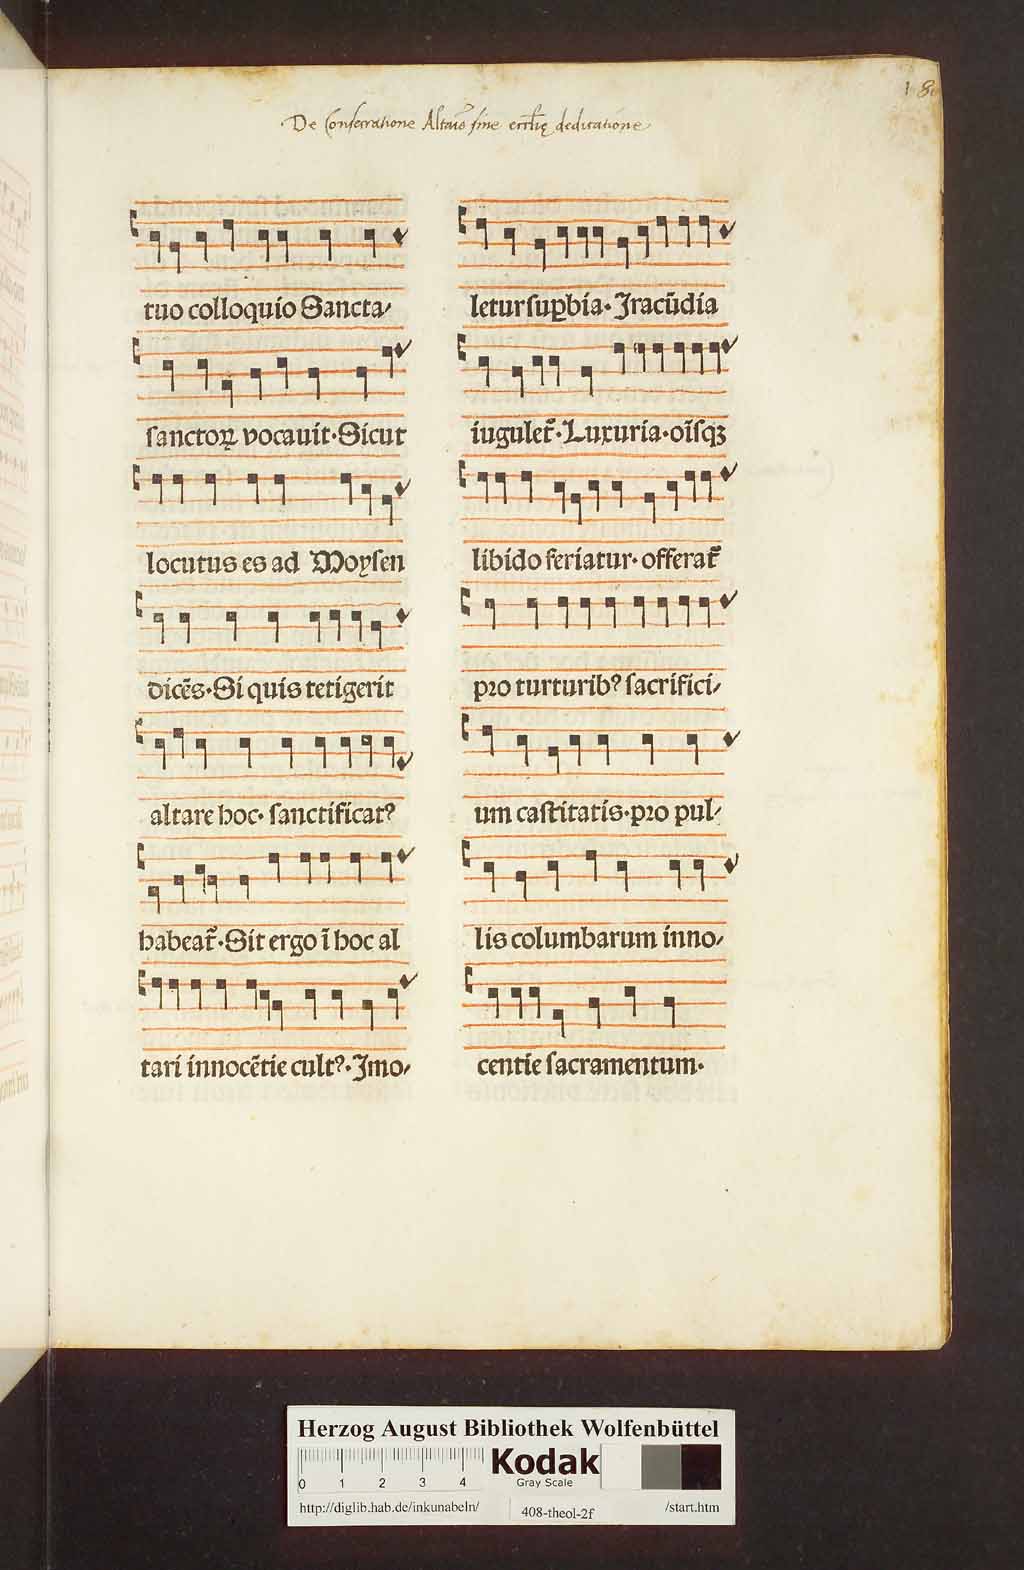 18
De Consecratione Altaris sine eccl̄ię dedicatione
tuo colloquio Sancta,
sanctoꝝ vocauit·Sicut
locutus es ad Moysen
dicēs·Si quis tetigerit
altare hoc· sanctificatꝰ
habeat᷑·Sit ergo ī hoc al
tari innocētie cultꝰ·Imo,
letur suꝑbia·Iracūdia
iugulet᷑·Luxuria·oīsqꝫ
libido feriatur·offerat᷑
pro turturibꝰ sacrifici,
um castitatis·pro pul,
lis columbarum inno,
centie sacramentum·
Herzog August Bibliothek Wolfenbüttel
0 1 2 3 4
Kodak
Gray Scale
http://diglib.hab.de/inkunabeln/ 408-theol-2f /start.htm